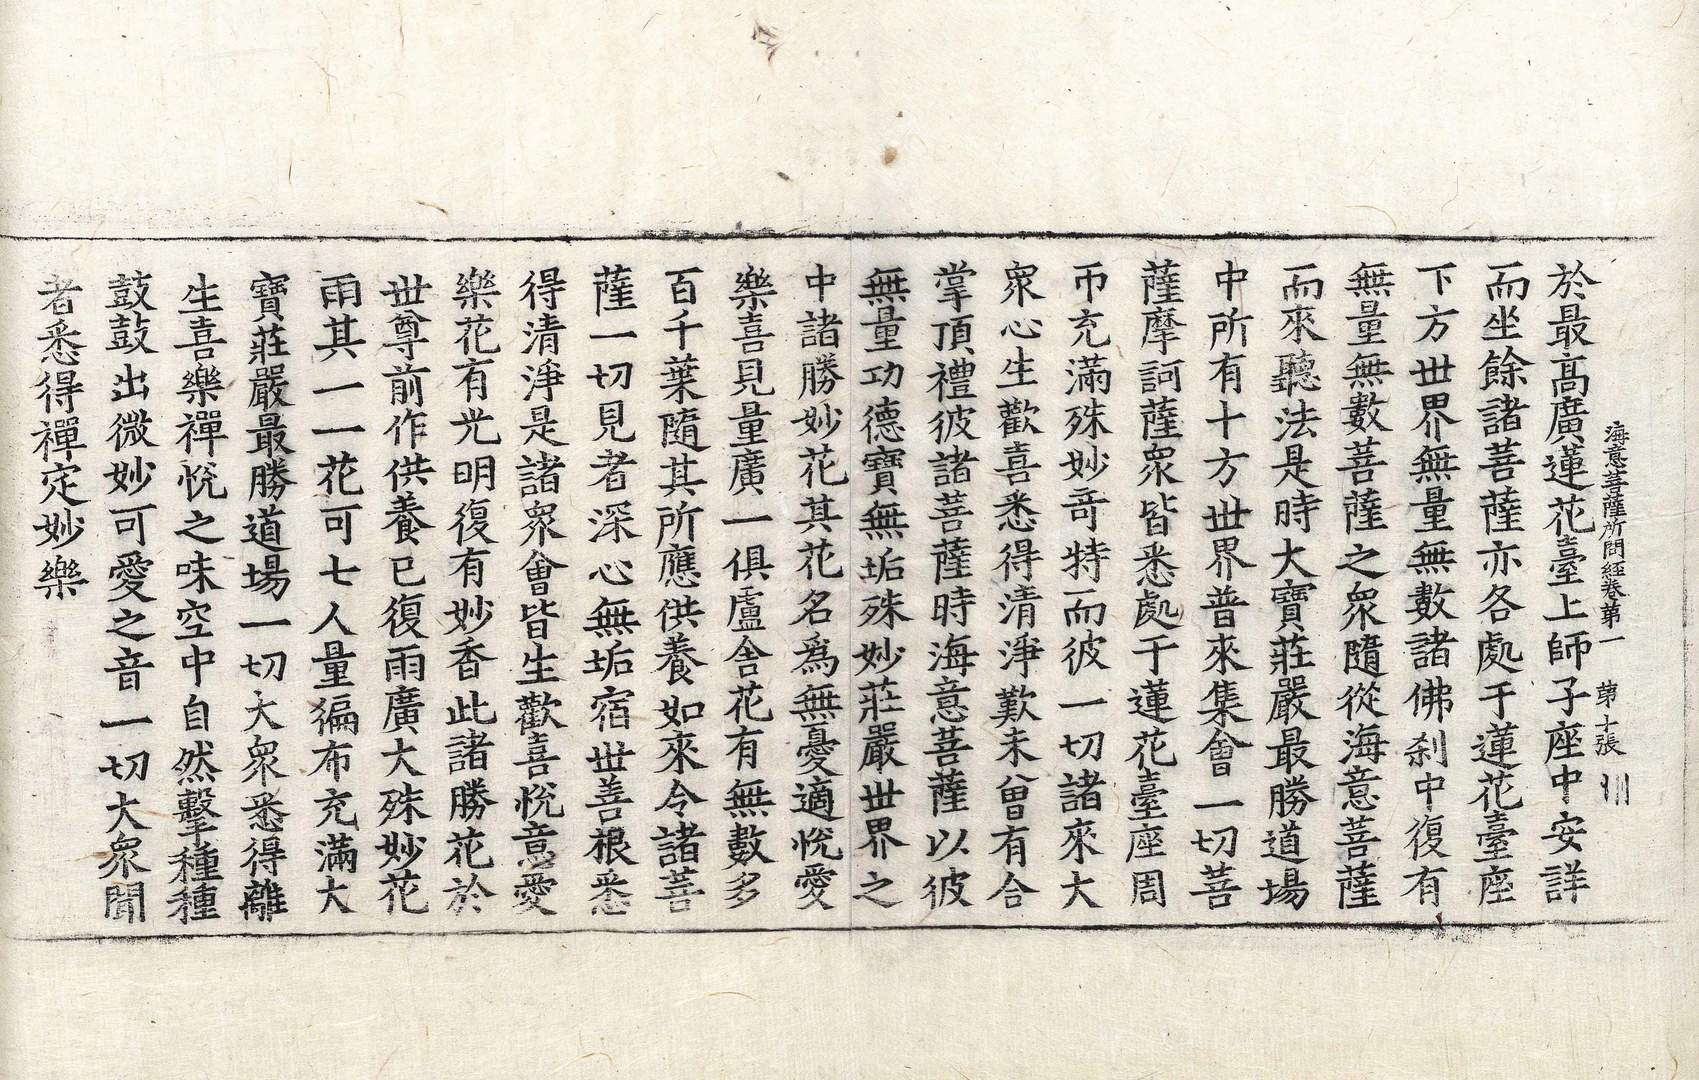 海意菩薩所問經卷第一 第十張 川
於最高廣蓮花臺上師子座中安詳
而坐餘諸菩薩亦各處于蓮花臺座
下方世界無量無數諸佛刹中復有
無量無數菩薩之衆隨從海意菩薩
而來聽法是時大寶莊嚴最勝道場
中所有十方世界普來集會一切菩
薩摩訶薩衆皆悉處于蓮花臺座周
帀充滿殊妙奇特而彼一切諸來大
衆心生歡喜悉得清淨歎未曾有合
掌頂禮彼諸菩薩時海意菩薩以彼
無量功德寶無垢殊妙莊嚴世界之
中諸勝妙花其花名爲無憂適悅愛
樂喜見量廣一俱盧舍花有無數多
百千葉隨其所應供養如來令諸菩
薩一切見者深心無垢宿世善根悉
得清淨是諸衆會皆生歡喜悅意愛
樂花有光明復有妙香此諸勝花於
世尊前作供養已復雨廣大殊妙花
雨其一一花可七人量徧布充滿大
寶莊嚴最勝道場一切大衆悉得離
生喜樂禪悅之味空中自然擊種種
鼓鼓出微妙可愛之音一切大衆聞
者悉得禪定妙樂